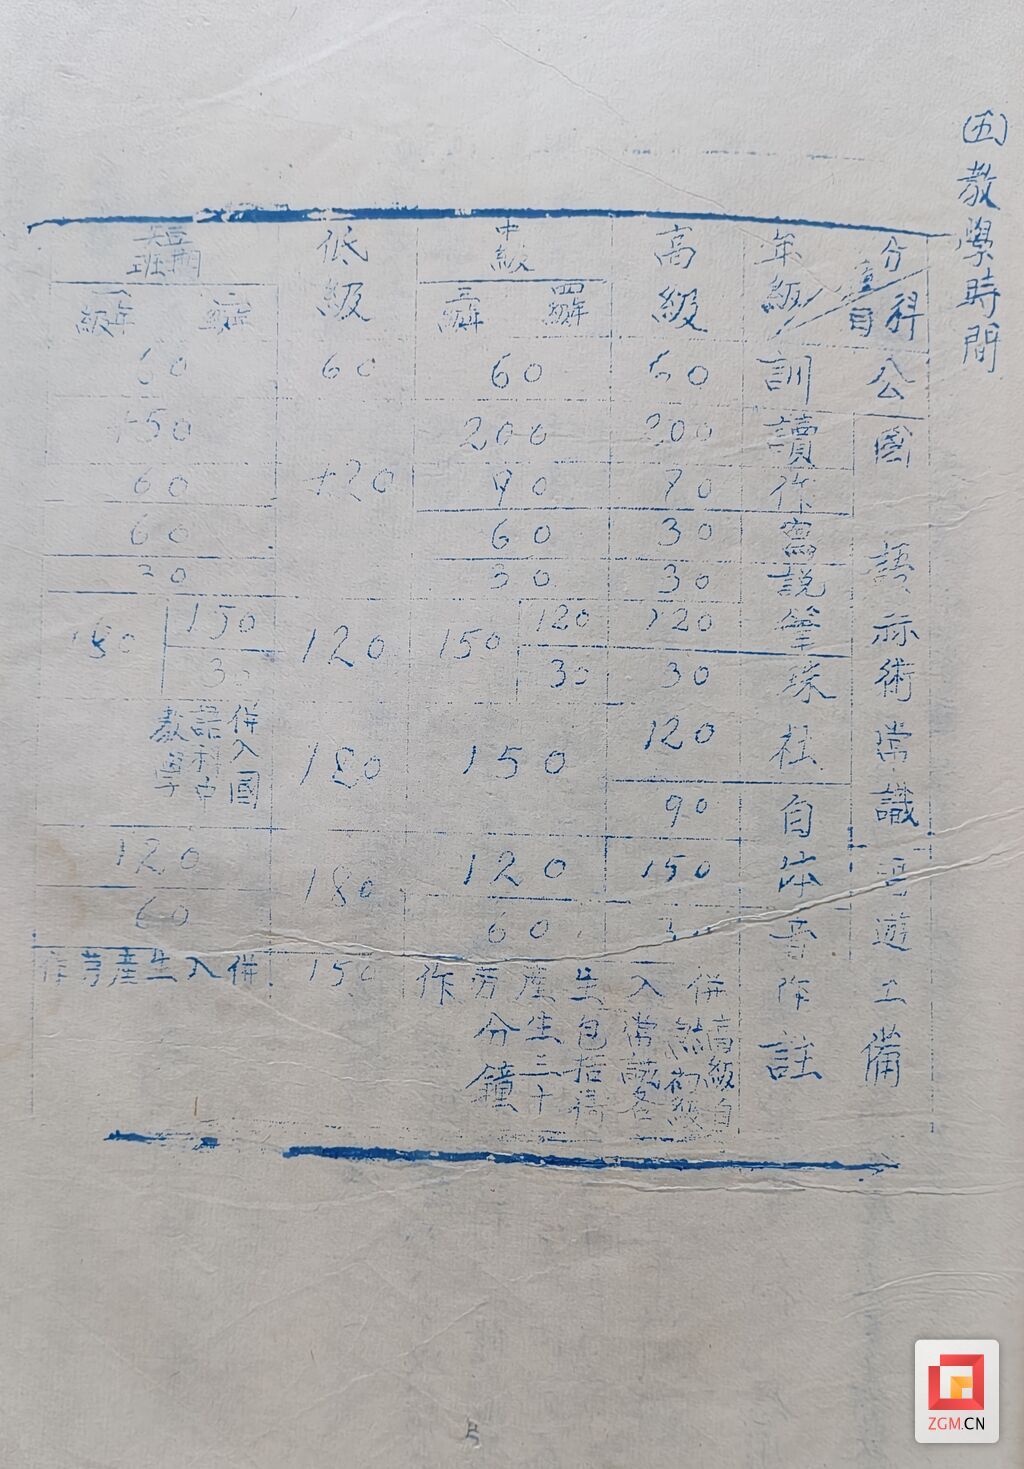 (五)教學時間
分量 科目 年級
高級
中級
四年級
三年級
低級
短期班
二年級
一年級
公訓
60
60
60
60
國語
讀
200
200
120
150
作
70
90
60
寫
30
60
60
說
30
30
30
算術
筆
120
120
150
120
150
150
珠
30
30
30
常識
社
120
150
180
併入國語科中教學
自
90
唱遊
体
150
120
180
120
音
60
60
工作
併入生產勞作
150
併入生產勞作
備註
高級自然初級常識各包括衛生三十分鐘
5
ZGM.CN